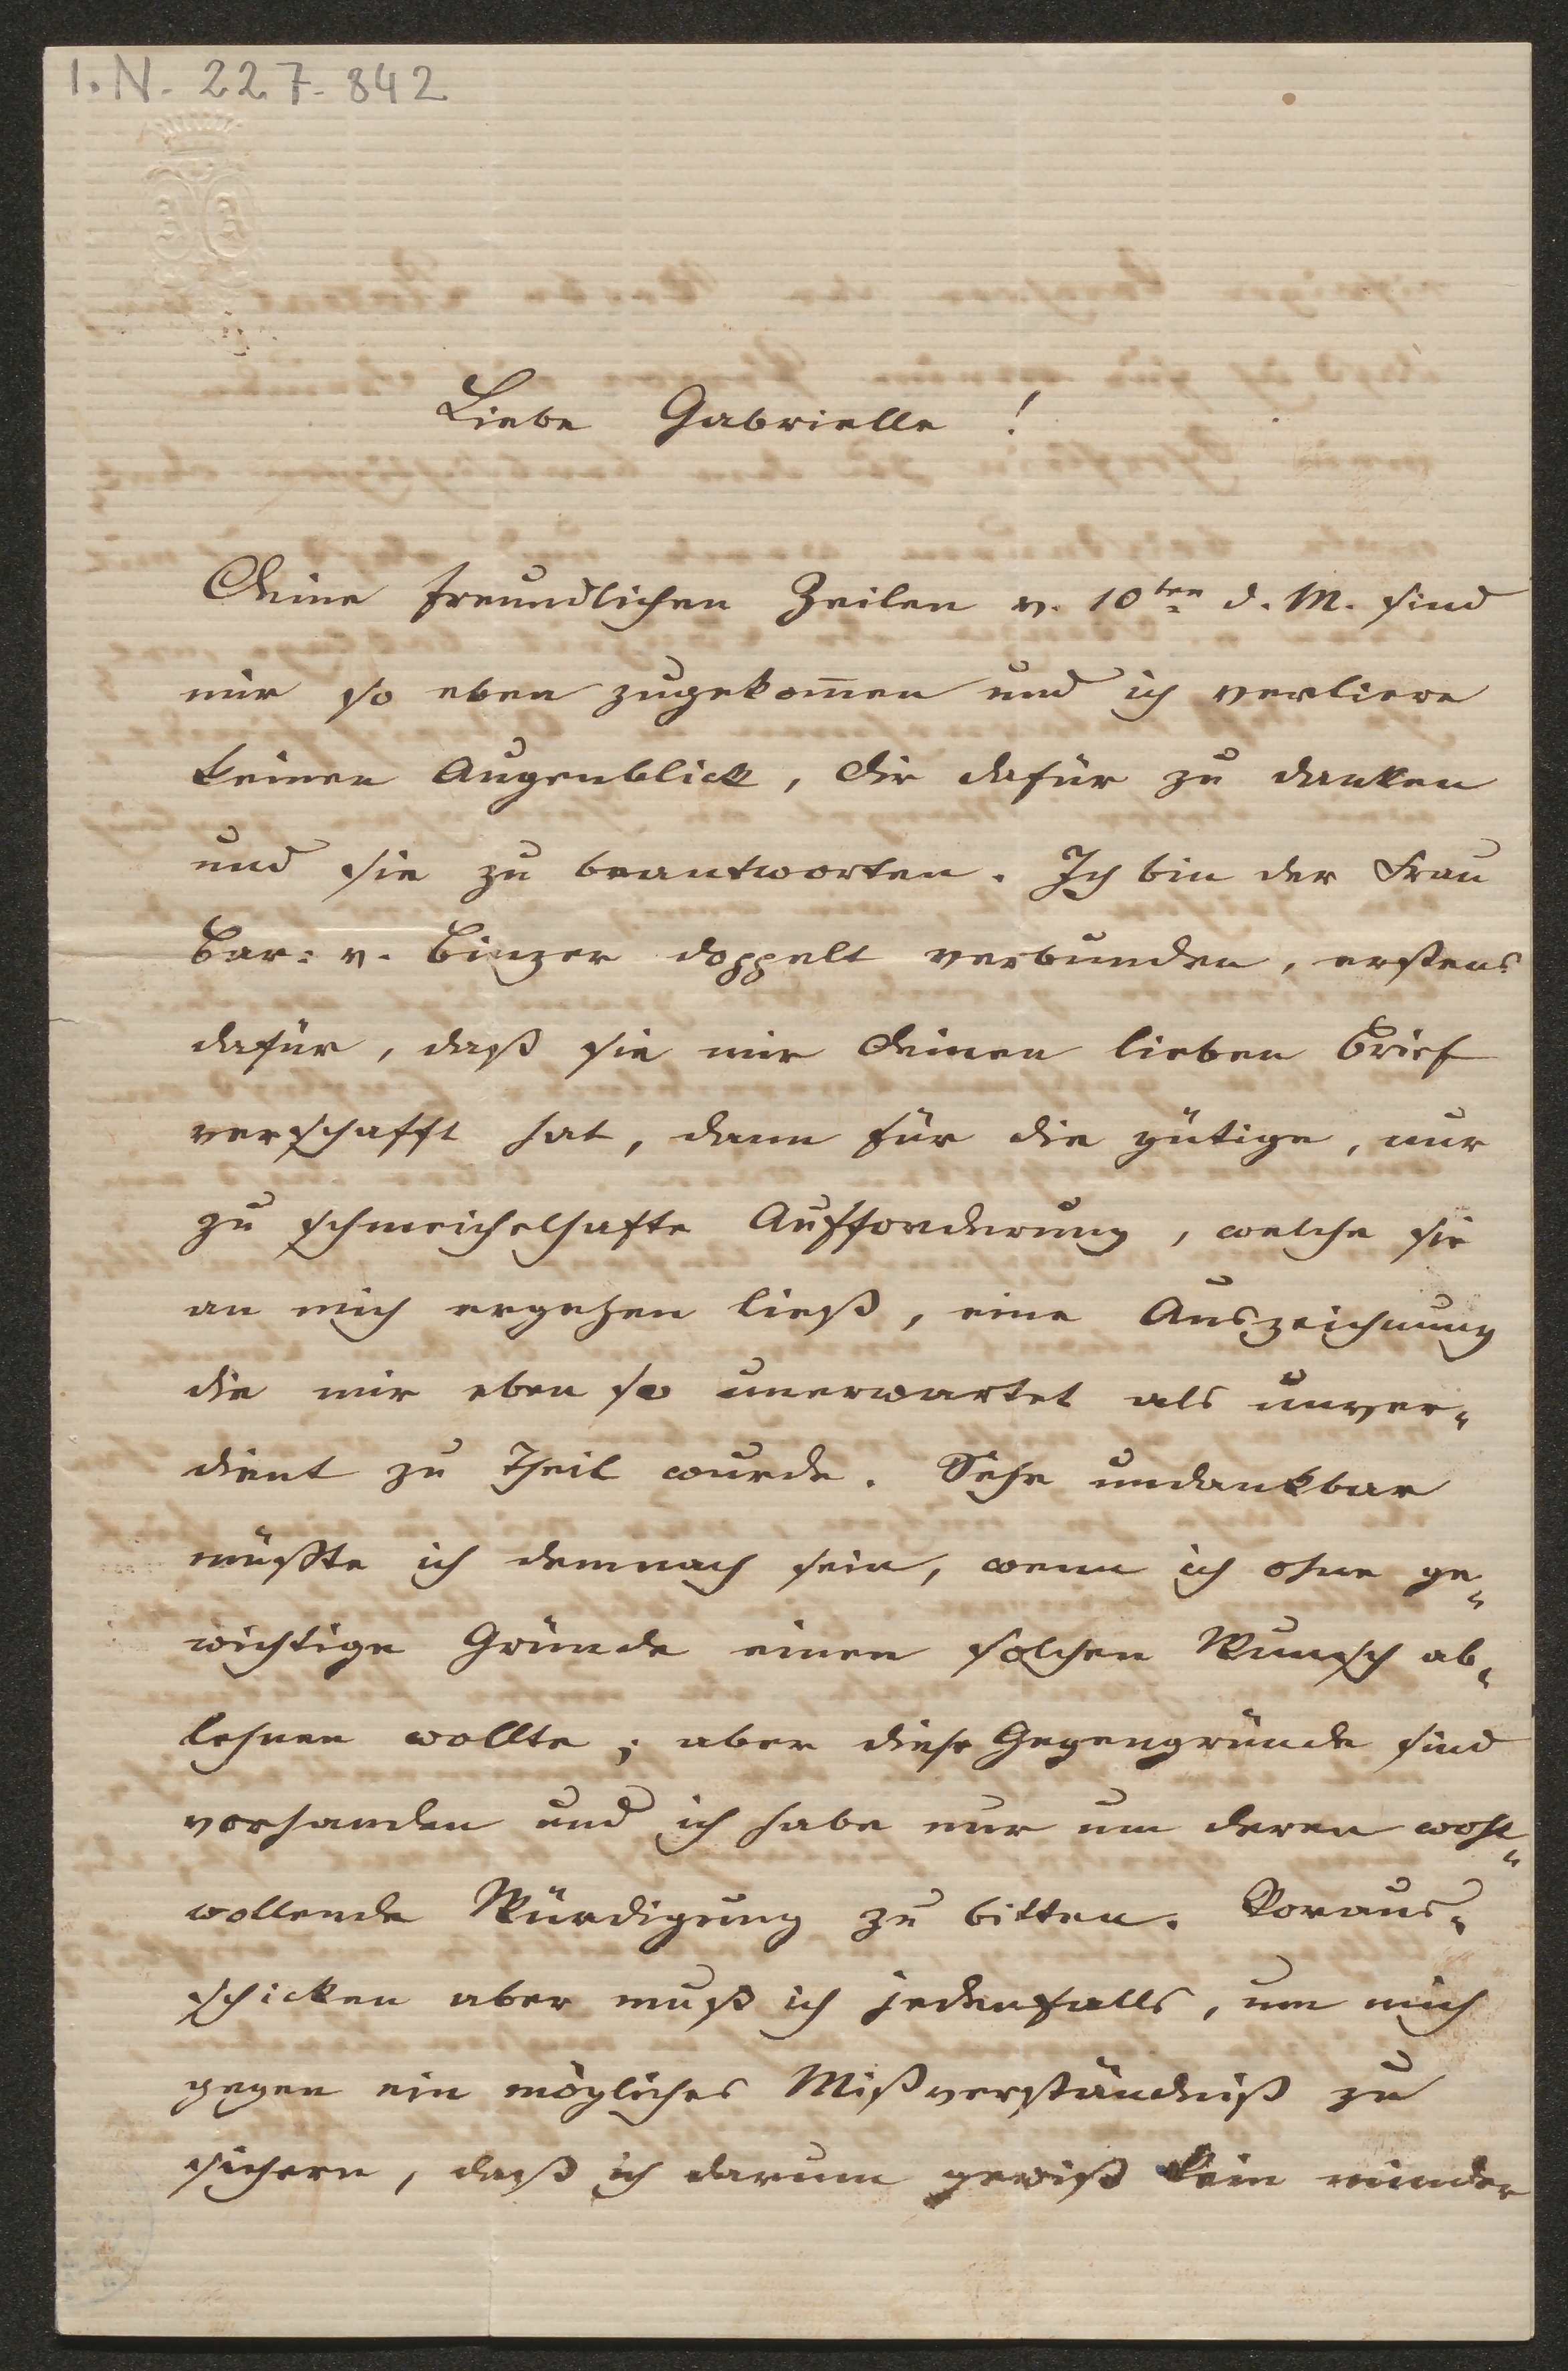 I.N. 227.842
Liebe Gabrielle!
Deine freundlichen Zeilen v. 10ten d. M. sind
mir so eben zugekom̄en und ich verliere
keinen Augenblick, Dir dafür zu danken
und sie zu beantworten. Ich bin der Frau
Bar: v. Binzer doppelt verbunden, erstens
dafür, daß sie mir Deinen lieben Brief
verschafft hat, dann für die gütige, nur
zu schmeichelhafte Aufforderung, welche sie
an mich ergehen ließ, eine Auszeichnung
die mir eben so unerwartet als unver-
dient zu Theil wurde. Sehr undankbar
müßte ich demnach sein, wenn ich ohne ge-
wichtige Gründe einen solchen Wunsch ab-
lehnen wollte; aber diese Gegengründe sind
vorhanden und ich habe nur um deren wohl-
wollende Würdigung zu bitten. Voraus-
schicken aber muß ich jedenfalls, um mich
gegen ein mögliches Mißverständniß zu
sichern, daß ich darum gewiß kein minder